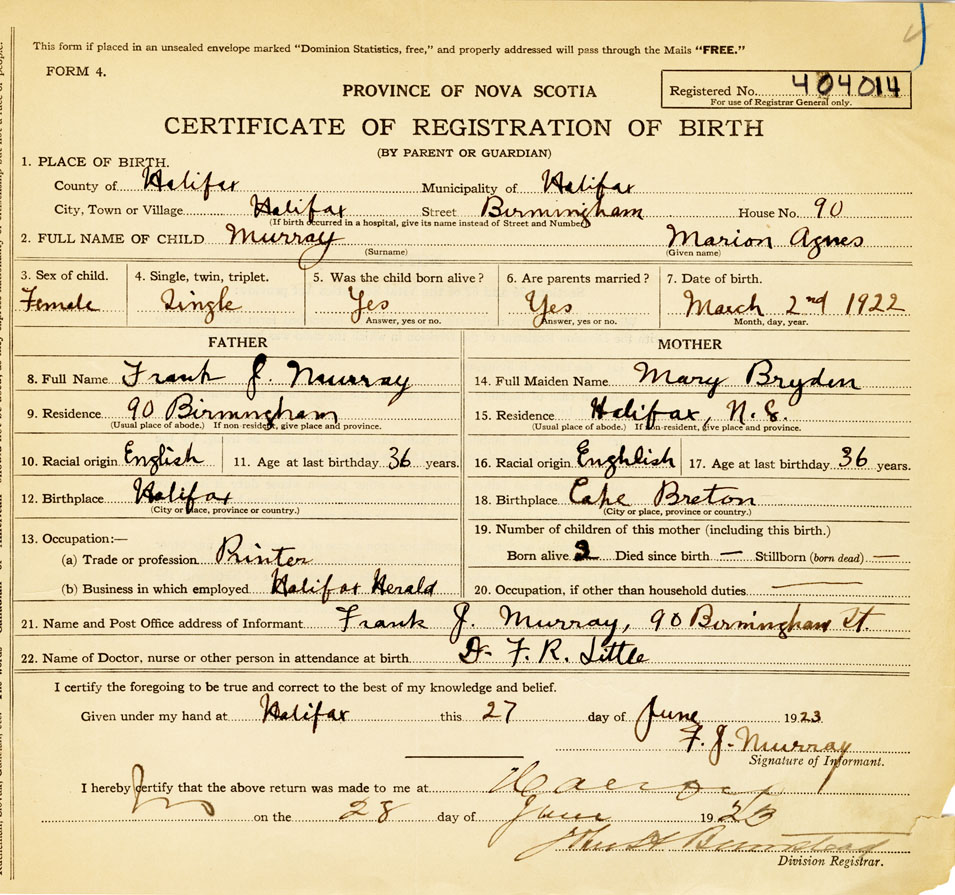 This form if placed in an unsealed envelope marked "Dominion Statistics, free," and properly addressed will pass through the Mails "FREE."
FORM 4.
PROVINCE OF NOVA SCOTIA
Registered No. 404014
For use of Registrar General only.
CERTIFICATE OF REGISTRATION OF BIRTH
(BY PARENT OR GUARDIAN)
1. PLACE OF BIRTH.
County of Halifax Municipality of Halifax
City, Town or Village Halifax Street Birmingham House No. 90
(If birth occurred in a hospital, give its name instead of Street and Number)
2. FULL NAME OF CHILD Murray Marion Agnes
(Surname) (Given name)
3. Sex of child. 4. Single, twin, triplet. 5. Was the child born alive? 6. Are parents married? 7. Date of birth.
Female Single Yes Yes March 2nd 1922
Answer, yes or no. Answer, yes or no. Month, day, year.
FATHER MOTHER
8. Full Name Frank J. Murray 14. Full Maiden Name Mary Bryden
9. Residence 90 Birmingham 15. Residence Halifax, N.S.
(Usual place of abode.) If non-resident, give place and province. (Usual place of abode.) If non-resident, give place and province.
10. Racial origin English 11. Age at last birthday 36 years. 16. Racial origin Enghlish 17. Age at last birthday 36 years.
12. Birthplace Halifax 18. Birthplace Cape Breton
(City or place, province or country.) (City or place, province or country.)
13. Occupation:— 19. Number of children of this mother (including this birth.)
(a) Trade or profession Printer Born alive 2 Died since birth — Stillborn (born dead) —
(b) Business in which employed Halifax Herald 20. Occupation, if other than household duties —
21. Name and Post Office address of Informant Frank J. Murray, 90 Birmingham St.
22. Name of Doctor, nurse or other person in attendance at birth Dr F. R. Little
I certify the foregoing to be true and correct to the best of my knowledge and belief.
Given under my hand at Halifax this 27 day of June 1923
F. J. Murray
Signature of Informant.
I hereby certify that the above return was made to me at
on the 28 day of June 1923
Division Registrar.